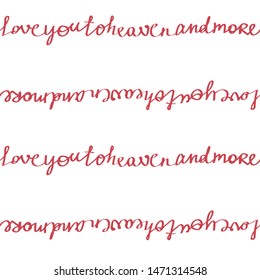 love you to heaven and more
love you to heaven and more
love you to heaven and more
love you to heaven and more
shutterstock.com · 1471314548